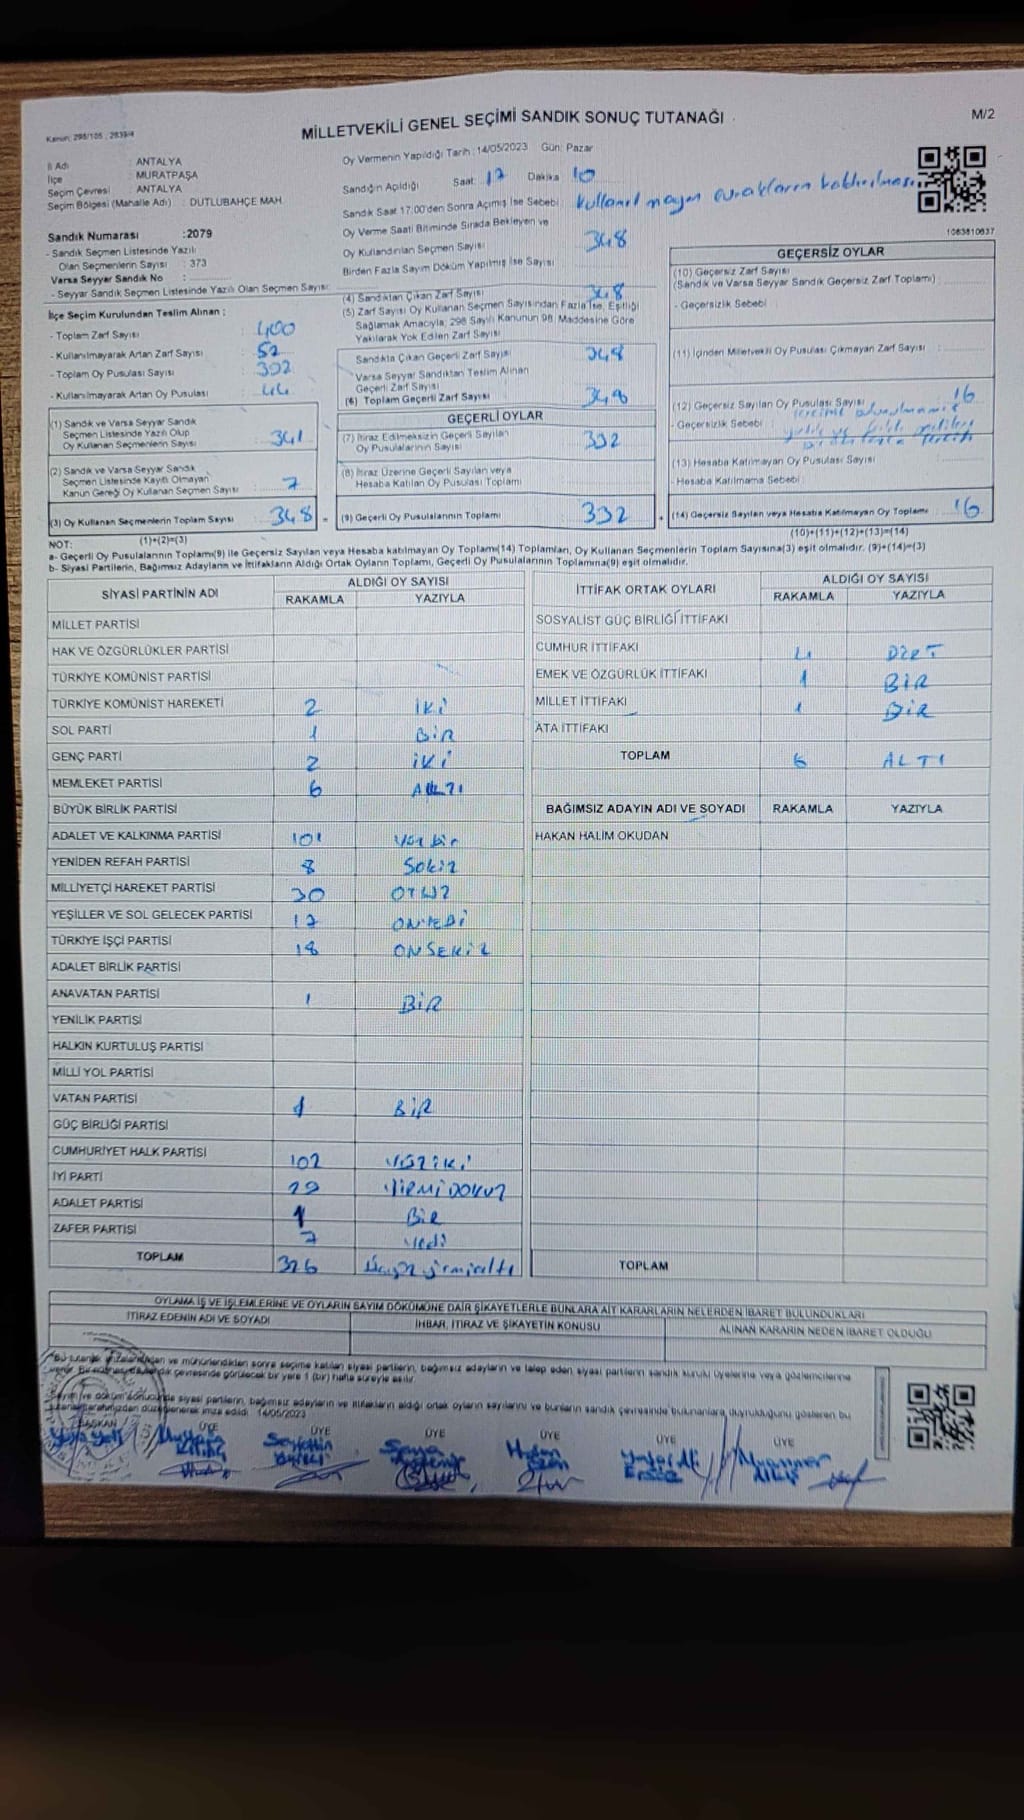 Kanun: 298/105, 2839/4
MİLLETVEKİLİ GENEL SEÇİMİ SANDIK SONUÇ TUTANAĞI
M/2
İl Adı : ANTALYA
İlçe : MURATPAŞA
Seçim Çevresi : ANTALYA
Seçim Bölgesi (Mahalle Adı) : DUTLUBAHÇE MAH
Oy Vermenin Yapıldığı Tarih : 14/05/2023 Gün: Pazar
Sandığın Açıldığı Saat: 17 Dakika 10
Sandık Saat 17:00'den Sonra Açılmış İse Sebebi kullanılmayan evrakların kaldırılması
Oy Verme Saati Bitiminde Sırada Bekleyen ve
Oy Kullandırılan Seçmen Sayısı 348
Birden Fazla Sayım Döküm Yapılmış İse Sayısı
1063610637
Sandık Numarası : 2079
- Sandık Seçmen Listesinde Yazılı
Olan Seçmenlerin Sayısı : 373
Varsa Seyyar Sandık No :
- Seyyar Sandık Seçmen Listesinde Yazılı Olan Seçmen Sayısı:
İlçe Seçim Kurulundan Teslim Alınan ;
- Toplam Zarf Sayısı : 400
- Kullanılmayarak Artan Zarf Sayısı : 52
- Toplam Oy Pusulası Sayısı : 392
- Kullanılmayarak Artan Oy Pusulası : 44
(1) Sandık ve Varsa Seyyar Sandık
Seçmen Listesinde Yazılı Olup
Oy Kullanan Seçmenlerin Sayısı : 341
(2) Sandık ve Varsa Seyyar Sandık
Seçmen Listesinde Kayıtlı Olmayan
Kanun Gereği Oy Kullanan Seçmen Sayısı : 7
(3) Oy Kullanan Seçmenlerin Toplam Sayısı : 348 =
(1)+(2)=(3)
(4) Sandıktan Çıkan Zarf Sayısı 348
(5) Zarf Sayısı Oy Kullanan Seçmen Sayısından Fazla İse, Eşitliği
Sağlamak Amacıyla, 298 Sayılı Kanunun 98. Maddesine Göre
Yakılarak Yok Edilen Zarf Sayısı
Sandıkta Çıkan Geçerli Zarf Sayısı 348
Varsa Seyyar Sandıktan Teslim Alınan
Geçerli Zarf Sayısı
(6) Toplam Geçerli Zarf Sayısı 348
GEÇERLİ OYLAR
(7) İtiraz Edilmeksizin Geçerli Sayılan
Oy Pusulalarının Sayısı : 332
(8) İtiraz Üzerine Geçerli Sayılan veya
Hesaba Katılan Oy Pusulası Toplamı
(9) Geçerli Oy Pusulalarının Toplamı : 332 +
GEÇERSİZ OYLAR
(10) Geçersiz Zarf Sayısı
(Sandık ve Varsa Seyyar Sandık Geçersiz Zarf Toplamı) :
- Geçersizlik Sebebi :
(11) İçinden Milletvekili Oy Pusulası Çıkmayan Zarf Sayısı :
(12) Geçersiz Sayılan Oy Pusulası Sayısı 16
- Geçersizlik Sebebi :
(13) Hesaba Katılmayan Oy Pusulası Sayısı :
- Hesaba Katılmama Sebebi :
(14) Geçersiz Sayılan veya Hesaba Katılmayan Oy Toplamı : 16
(10)+(11)+(12)+(13)=(14)
NOT:
a- Geçerli Oy Pusulalarının Toplamı(9) ile Geçersiz Sayılan veya Hesaba katılmayan Oy Toplamı(14) Toplamları, Oy Kullanan Seçmenlerin Toplam Sayısına(3) eşit olmalıdır. (9)+(14)=(3)
b- Siyasi Partilerin, Bağımsız Adayların ve İttifakların Aldığı Ortak Oyların Toplamı, Geçerli Oy Pusulalarının Toplamına(9) eşit olmalıdır.
SİYASİ PARTİNİN ADI ALDIĞI OY SAYISI
RAKAMLA YAZIYLA
MİLLET PARTİSİ
HAK VE ÖZGÜRLÜKLER PARTİSİ
TÜRKİYE KOMÜNİST PARTİSİ
TÜRKİYE KOMÜNİST HAREKETİ 2 İKİ
SOL PARTİ 1 BİR
GENÇ PARTİ 2 İKİ
MEMLEKET PARTİSİ 6 ALTI
BÜYÜK BİRLİK PARTİSİ
ADALET VE KALKINMA PARTİSİ 101 Yüz bir
YENİDEN REFAH PARTİSİ 8 Sekiz
MİLLİYETÇİ HAREKET PARTİSİ 30 OTUZ
YEŞİLLER VE SOL GELECEK PARTİSİ 17 ONYEDİ
TÜRKİYE İŞÇİ PARTİSİ 18 ONSEKİZ
ADALET BİRLİK PARTİSİ
ANAVATAN PARTİSİ 1 BİR
YENİLİK PARTİSİ
HALKIN KURTULUŞ PARTİSİ
MİLLİ YOL PARTİSİ
VATAN PARTİSİ 1 BİR
GÜÇ BİRLİĞİ PARTİSİ
CUMHURİYET HALK PARTİSİ 102 YÜZİKİ
İYİ PARTİ 29 YİRMİDOKUZ
ADALET PARTİSİ 1 BİR
ZAFER PARTİSİ 7 Yedi
TOPLAM 326 Üçyüzyirmialtı
İTTİFAK ORTAK OYLARI ALDIĞI OY SAYISI
RAKAMLA YAZIYLA
SOSYALİST GÜÇ BİRLİĞİ İTTİFAKI
CUMHUR İTTİFAKI 4 DÖRT
EMEK VE ÖZGÜRLÜK İTTİFAKI 1 BİR
MİLLET İTTİFAKI 1 BİR
ATA İTTİFAKI
TOPLAM 6 ALTI
BAĞIMSIZ ADAYIN ADI VE SOYADI RAKAMLA YAZIYLA
HAKAN HALİM OKUDAN
TOPLAM
OYLAMA İŞ VE İŞLEMLERİNE VE OYLARIN SAYIM DÖKÜMÜNE DAİR ŞİKAYETLERLE BUNLARA AİT KARARLARIN NELERDEN İBARET BULUNDUKLARI
İTİRAZ EDENİN ADI VE SOYADI İHBAR, İTİRAZ VE ŞİKAYETİN KONUSU ALINAN KARARIN NEDEN İBARET OLDUĞU
ve mühürlendikten sonra seçime katılan siyasi partilerin, bağımsız adayların ve talep eden siyasi partilerin sandık kurulu üyelerine veya gözlemcilerine
çevresinde görülecek bir yere 1 (bir) hafta süreyle asılır.
ve döküm sonucunda siyasi partilerin, bağımsız adayların ve ittifakların aldığı ortak oyların sayılarını ve bunların sandık çevresinde bulunanlara duyrulduğunu gösteren bu
tarafımızdan düzenlenerek imza edildi. 14/05/2023
BAŞKAN ÜYE ÜYE ÜYE ÜYE ÜYE ÜYE